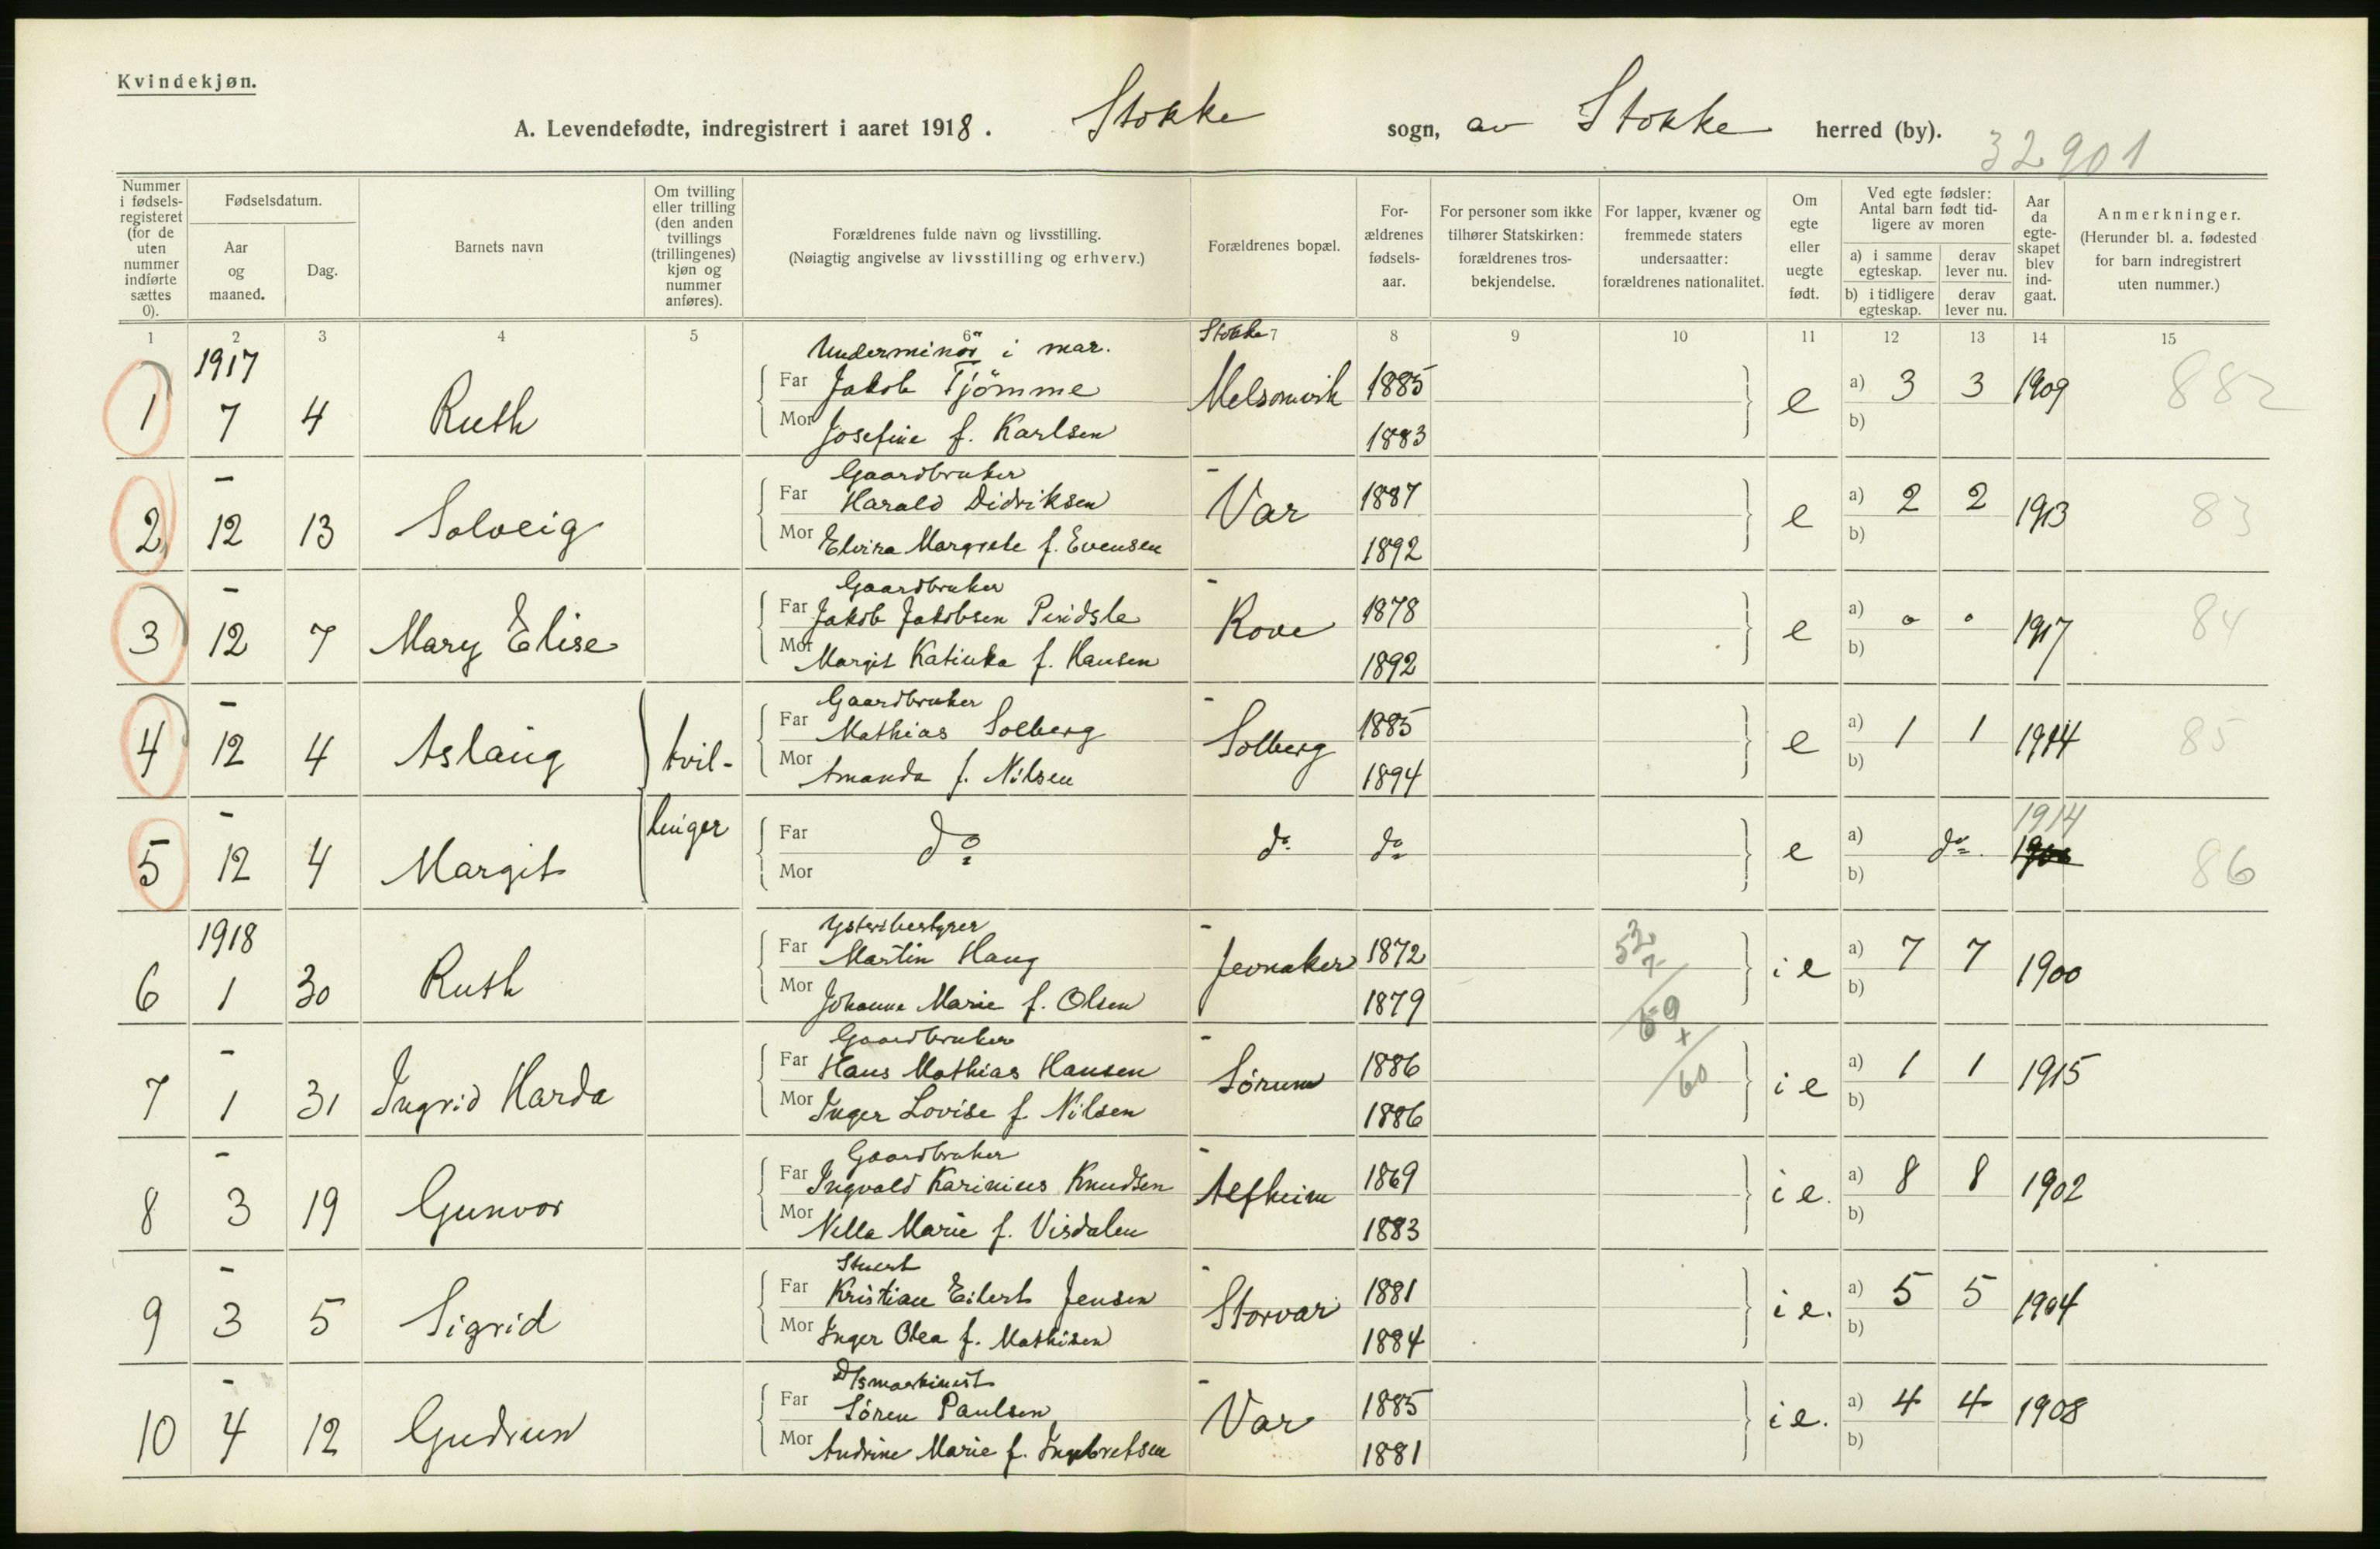 Kvindekjøn.
A. Levendefødte, indregistrert i aaret 1918. Stokke sogn, av Stokke herred (by).
32901
Nummer i fødsels-registeret (for de uten nummer indførte sættes 0).
Fødselsdatum.
Aar og maaned.
Dag.
Barnets navn
Om tvilling eller trilling (den anden tvillings (trillingenes) kjøn og nummer anføres).
Forældrenes fulde navn og livsstilling.
(Nøiagtig angivelse av livsstilling og erhverv.)
Forældrenes bopæl.
For-ældrenes fødsels-aar.
For personer som ikke tilhører Statskirken: forældrenes tros-bekjendelse.
For lapper, kvæner og fremmede staters undersaatter: forældrenes nationalitet.
Om egte eller uegte født.
Ved egte fødsler: Antal barn født tid-ligere av moren
a) i samme egteskap. derav lever nu.
b) i tidligere egteskap. derav lever nu.
Aar da egte-skapet blev ind-gaat.
Anmerkninger.
(Herunder bl. a. fødested for barn indregistrert uten nummer.)
1 2 3 4 5 6 7 8 9 10 11 12 13 14 15
1917 Underminør i mar. Stokke
1 7 4 Ruth Far Jakob Tjømme Melsomvik 1885 e a) 3 3 1909 882
Mor Josefine f. Karlsen 1883 b)
- Gaardbruker -
2 12 13 Solveig Far Harald Didriksen Var 1887 e a) 2 2 1913 83
Mor Elvira Margrete f. Evensen 1892 b)
- Gaardbruker -
3 12 7 Mary Elise Far Jakob Jakobsen Pindsle Rove 1878 e a) 0 0 1917 84
Mor Margit Katinka f. Hansen 1892 b)
- Gaardbruker -
4 12 4 Aslaug tvil- Far Mathias Solberg Solberg 1885 e a) 1 1 1914 85
Mor Amanda f. Nilsen 1894 b)
- 1914
5 12 4 Margit linger Far do do do e a) do 86
Mor b)
1918 Ysteribestyrer -
6 1 30 Ruth Far Martin Haug Jevnaker 1872 52 ie a) 7 7 1900
Mor Johanne Marie f. Olsen 1879 59 b)
- Gaardbruker -
7 1 31 Ingrid Harda Far Hans Mathias Hansen Sørum 1886 60 ie a) 1 1 1915
Mor Inger Lovise f. Nilsen 1886 b)
- Gaardbruker -
8 3 19 Gunvor Far Ingvald Karinius Knudsen Alfheim 1869 ie. a) 8 8 1902
Mor Nella Marie f. Visdalen 1883 b)
- Stuert -
9 3 5 Sigrid Far Kristian Eilert Jensen Storvar 1881 ie. a) 5 5 1904
Mor Inger Olea f. Mathisen 1884 b)
- D/smaskinist -
10 4 12 Gudrun Far Sören Paulsen Var 1885 ie. a) 4 4 1908
Mor Andrine Marie f. Ingebretsen 1881 b)